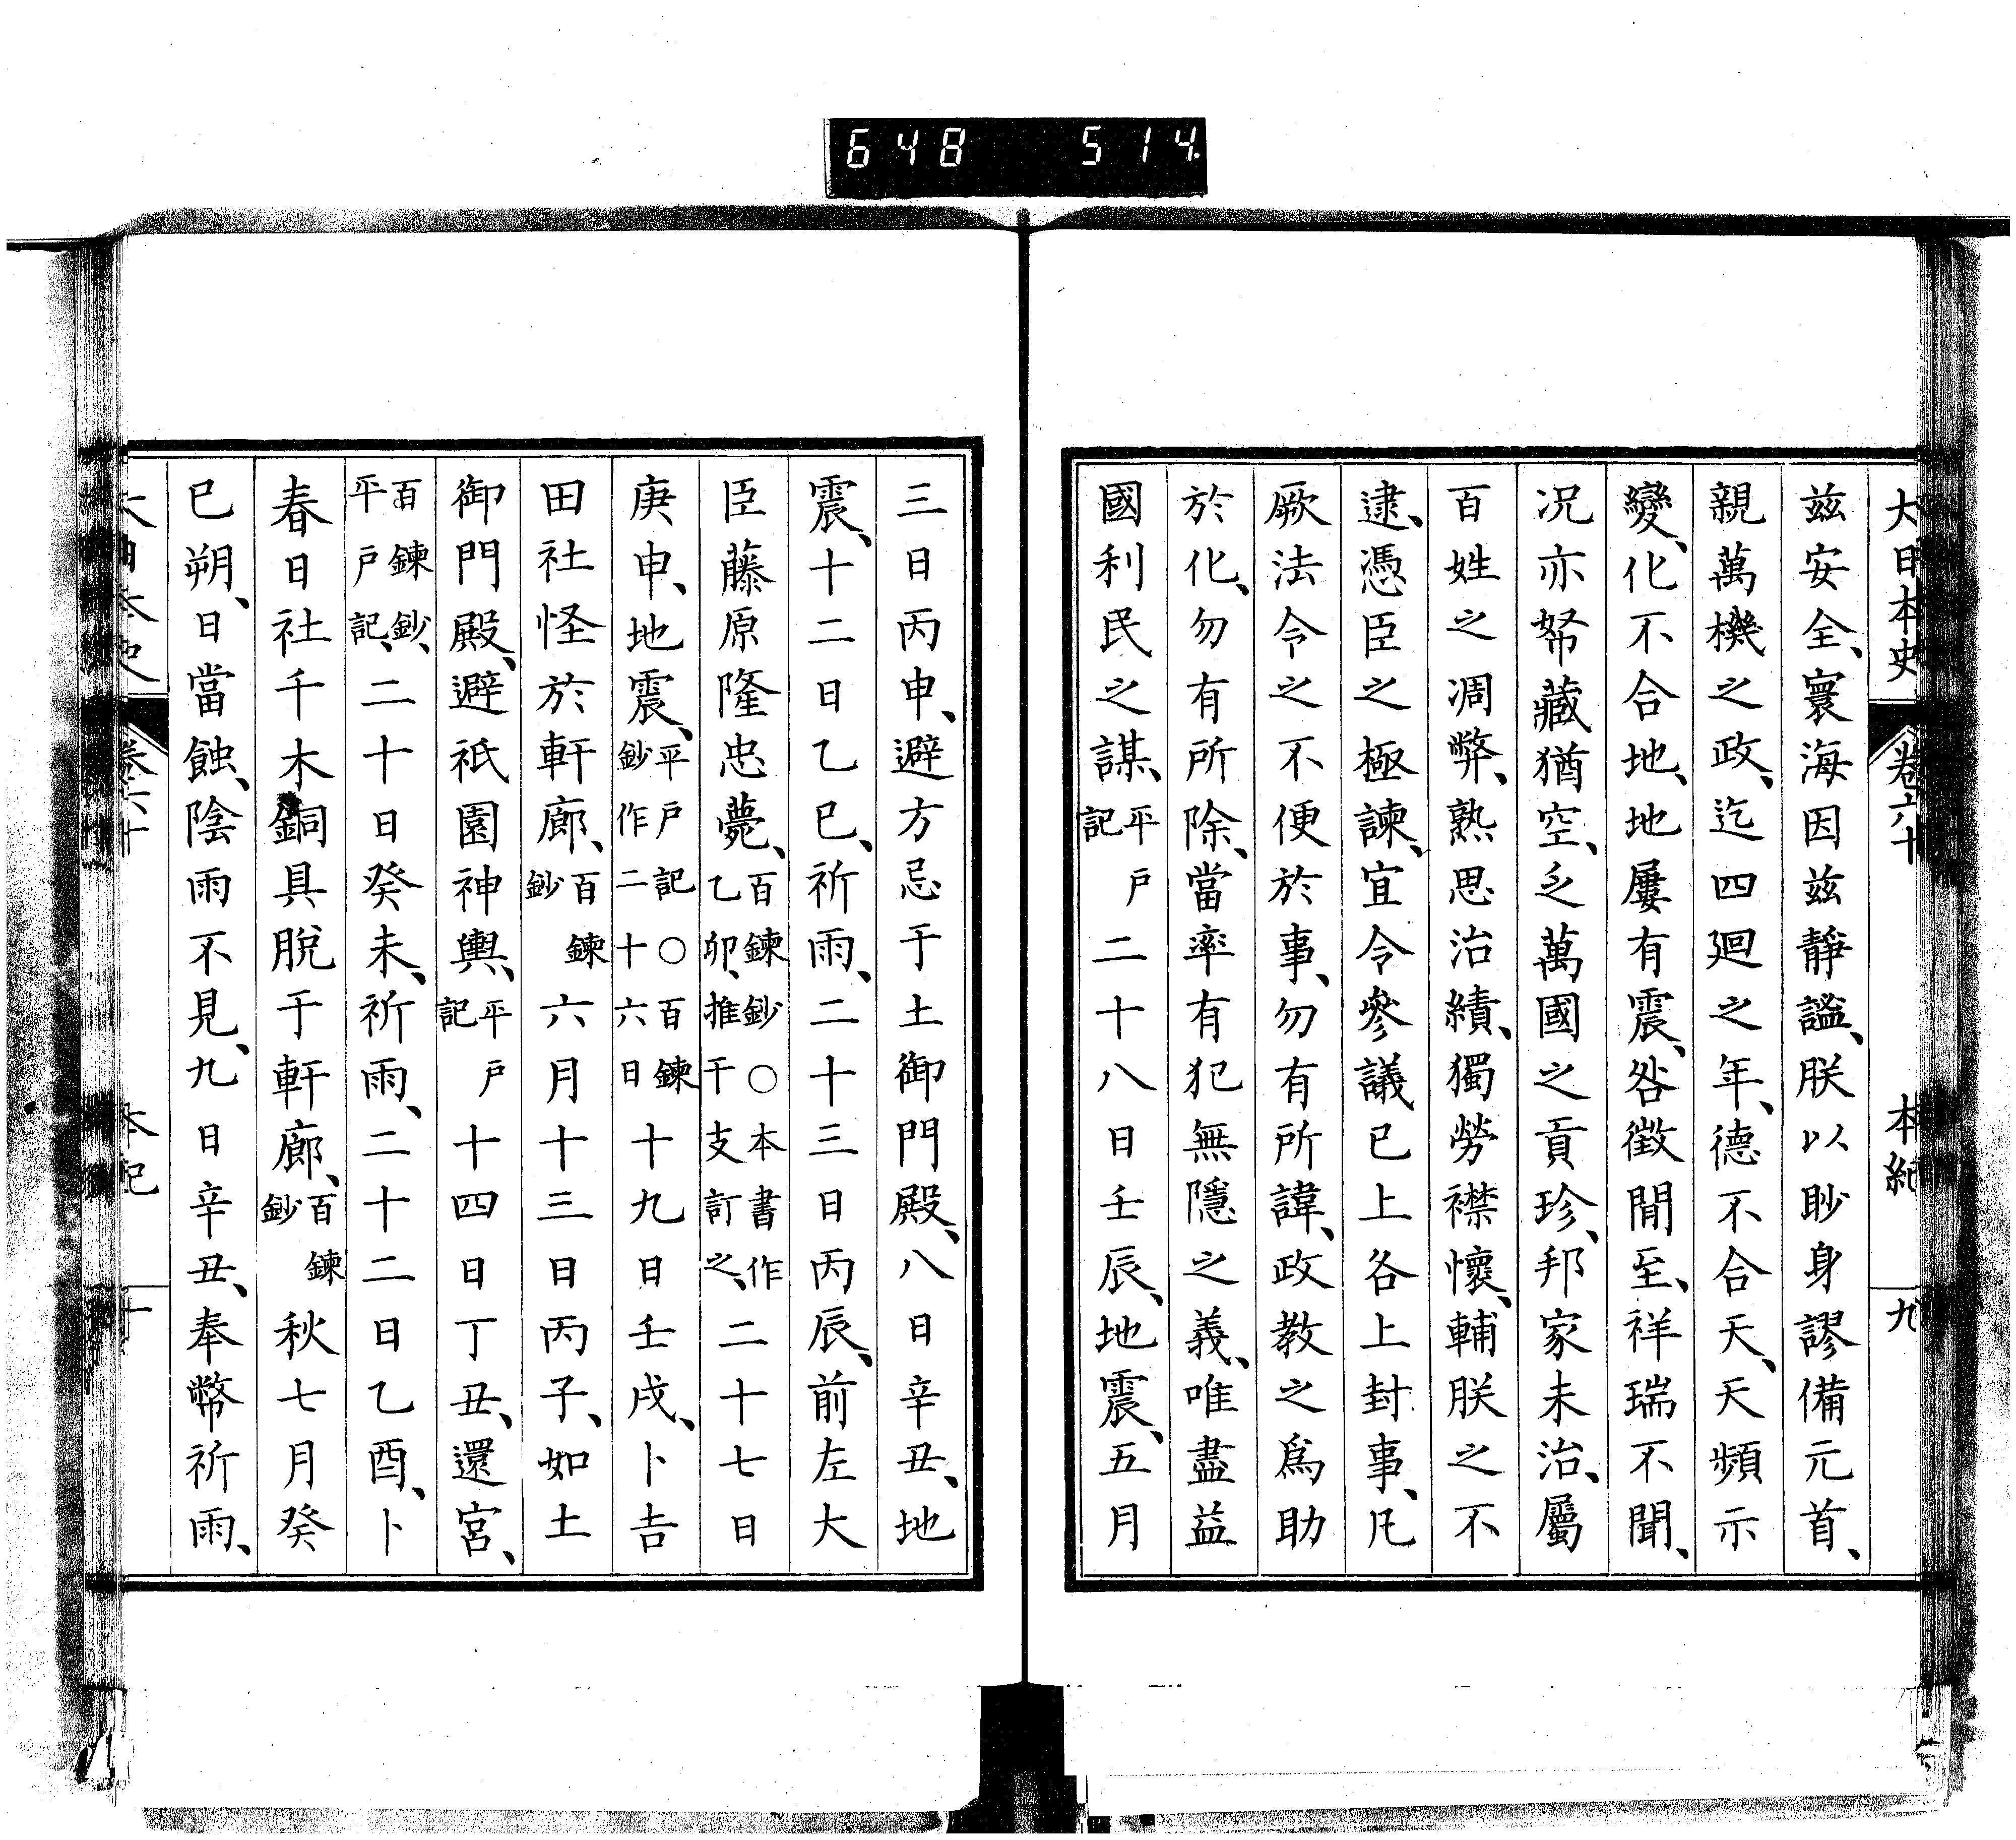 648 514
大日本史 卷六十 本紀 九
茲安全、寰海因茲靜謐、朕以眇身謬備元首、
親萬機之政、迄四廻之年、德不合天、天頻示
變、化不合地、地屢有震、咎徵間至、祥瑞不聞、
况亦帑藏猶空、乏萬國之貢珍、邦家未治、屬
百姓之凋弊、熟思治績、獨勞襟懷、輔朕之不
逮、憑臣之極諫、宜令參議已上各上封事、凡
厥法令之不便於事、勿有所諱、政教之爲助
於化、勿有所除、當率有犯無隱之義、唯盡益
國利民之謀、平戶記二十八日壬辰、地震、五月
三日丙申、避方忌于土御門殿、八日辛丑、地
震、十二日乙巳、祈雨、二十三日丙辰、前左大
臣藤原隆忠薨、百鍊鈔○本書作乙卯、推干支訂之、二十七日
庚申、地震、平戶記○百鍊鈔作二十六日十九日壬戌、卜吉
田社怪於軒廊、百鍊鈔六月十三日丙子、如土
御門殿、避祇園神輿、平戶記十四日丁丑、還宮、
百鍊鈔、平戶記、二十日癸未、祈雨、二十二日乙酉、卜
春日社千木銅具脫于軒廊、百鍊鈔秋七月癸
巳朔、日當蝕、陰雨不見、九日辛丑、奉幣祈雨、
大日本史 卷六十 本紀 十